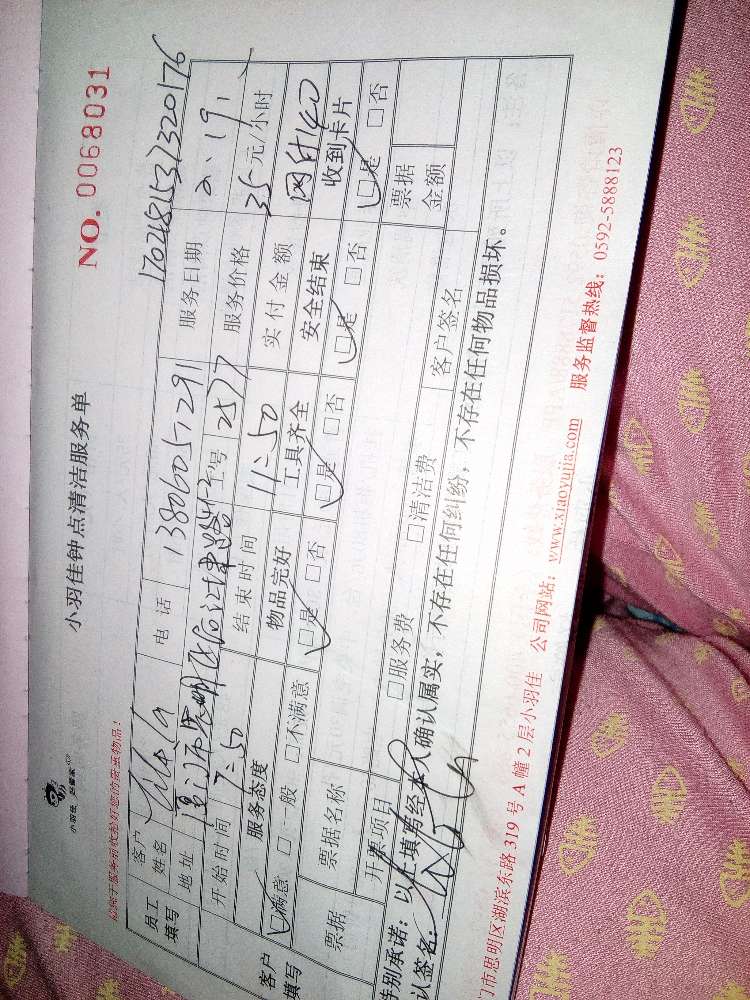 小羽佳钟点清洁服务单
NO. 0068031
170268153732017б
员工填写
客户姓名
电话 13806051291
服务日期 2.19
地址
工号 2577
服务价格 35元/小时
开始时间 7:50
结束时间 11:50
实付金额 网付140
客户填写
服务态度 物品完好 工具齐全 安全结束 收到卡片
□满意 □一般 □不满意 □是 □否 □是 □否 □是 □否 □是 □否
票据 票据名称 票据金额
开票项目 □服务费 □清洁费 客户签名
特别承诺：以上填写经本人确认属实，不存在任何纠纷，不存在任何物品损坏。
认签名：
门市思明区湖滨东路 319 号 A 幢 2 层小羽佳 公司网站：www.xiaoyujia.com 服务监督热线：0592-5888123